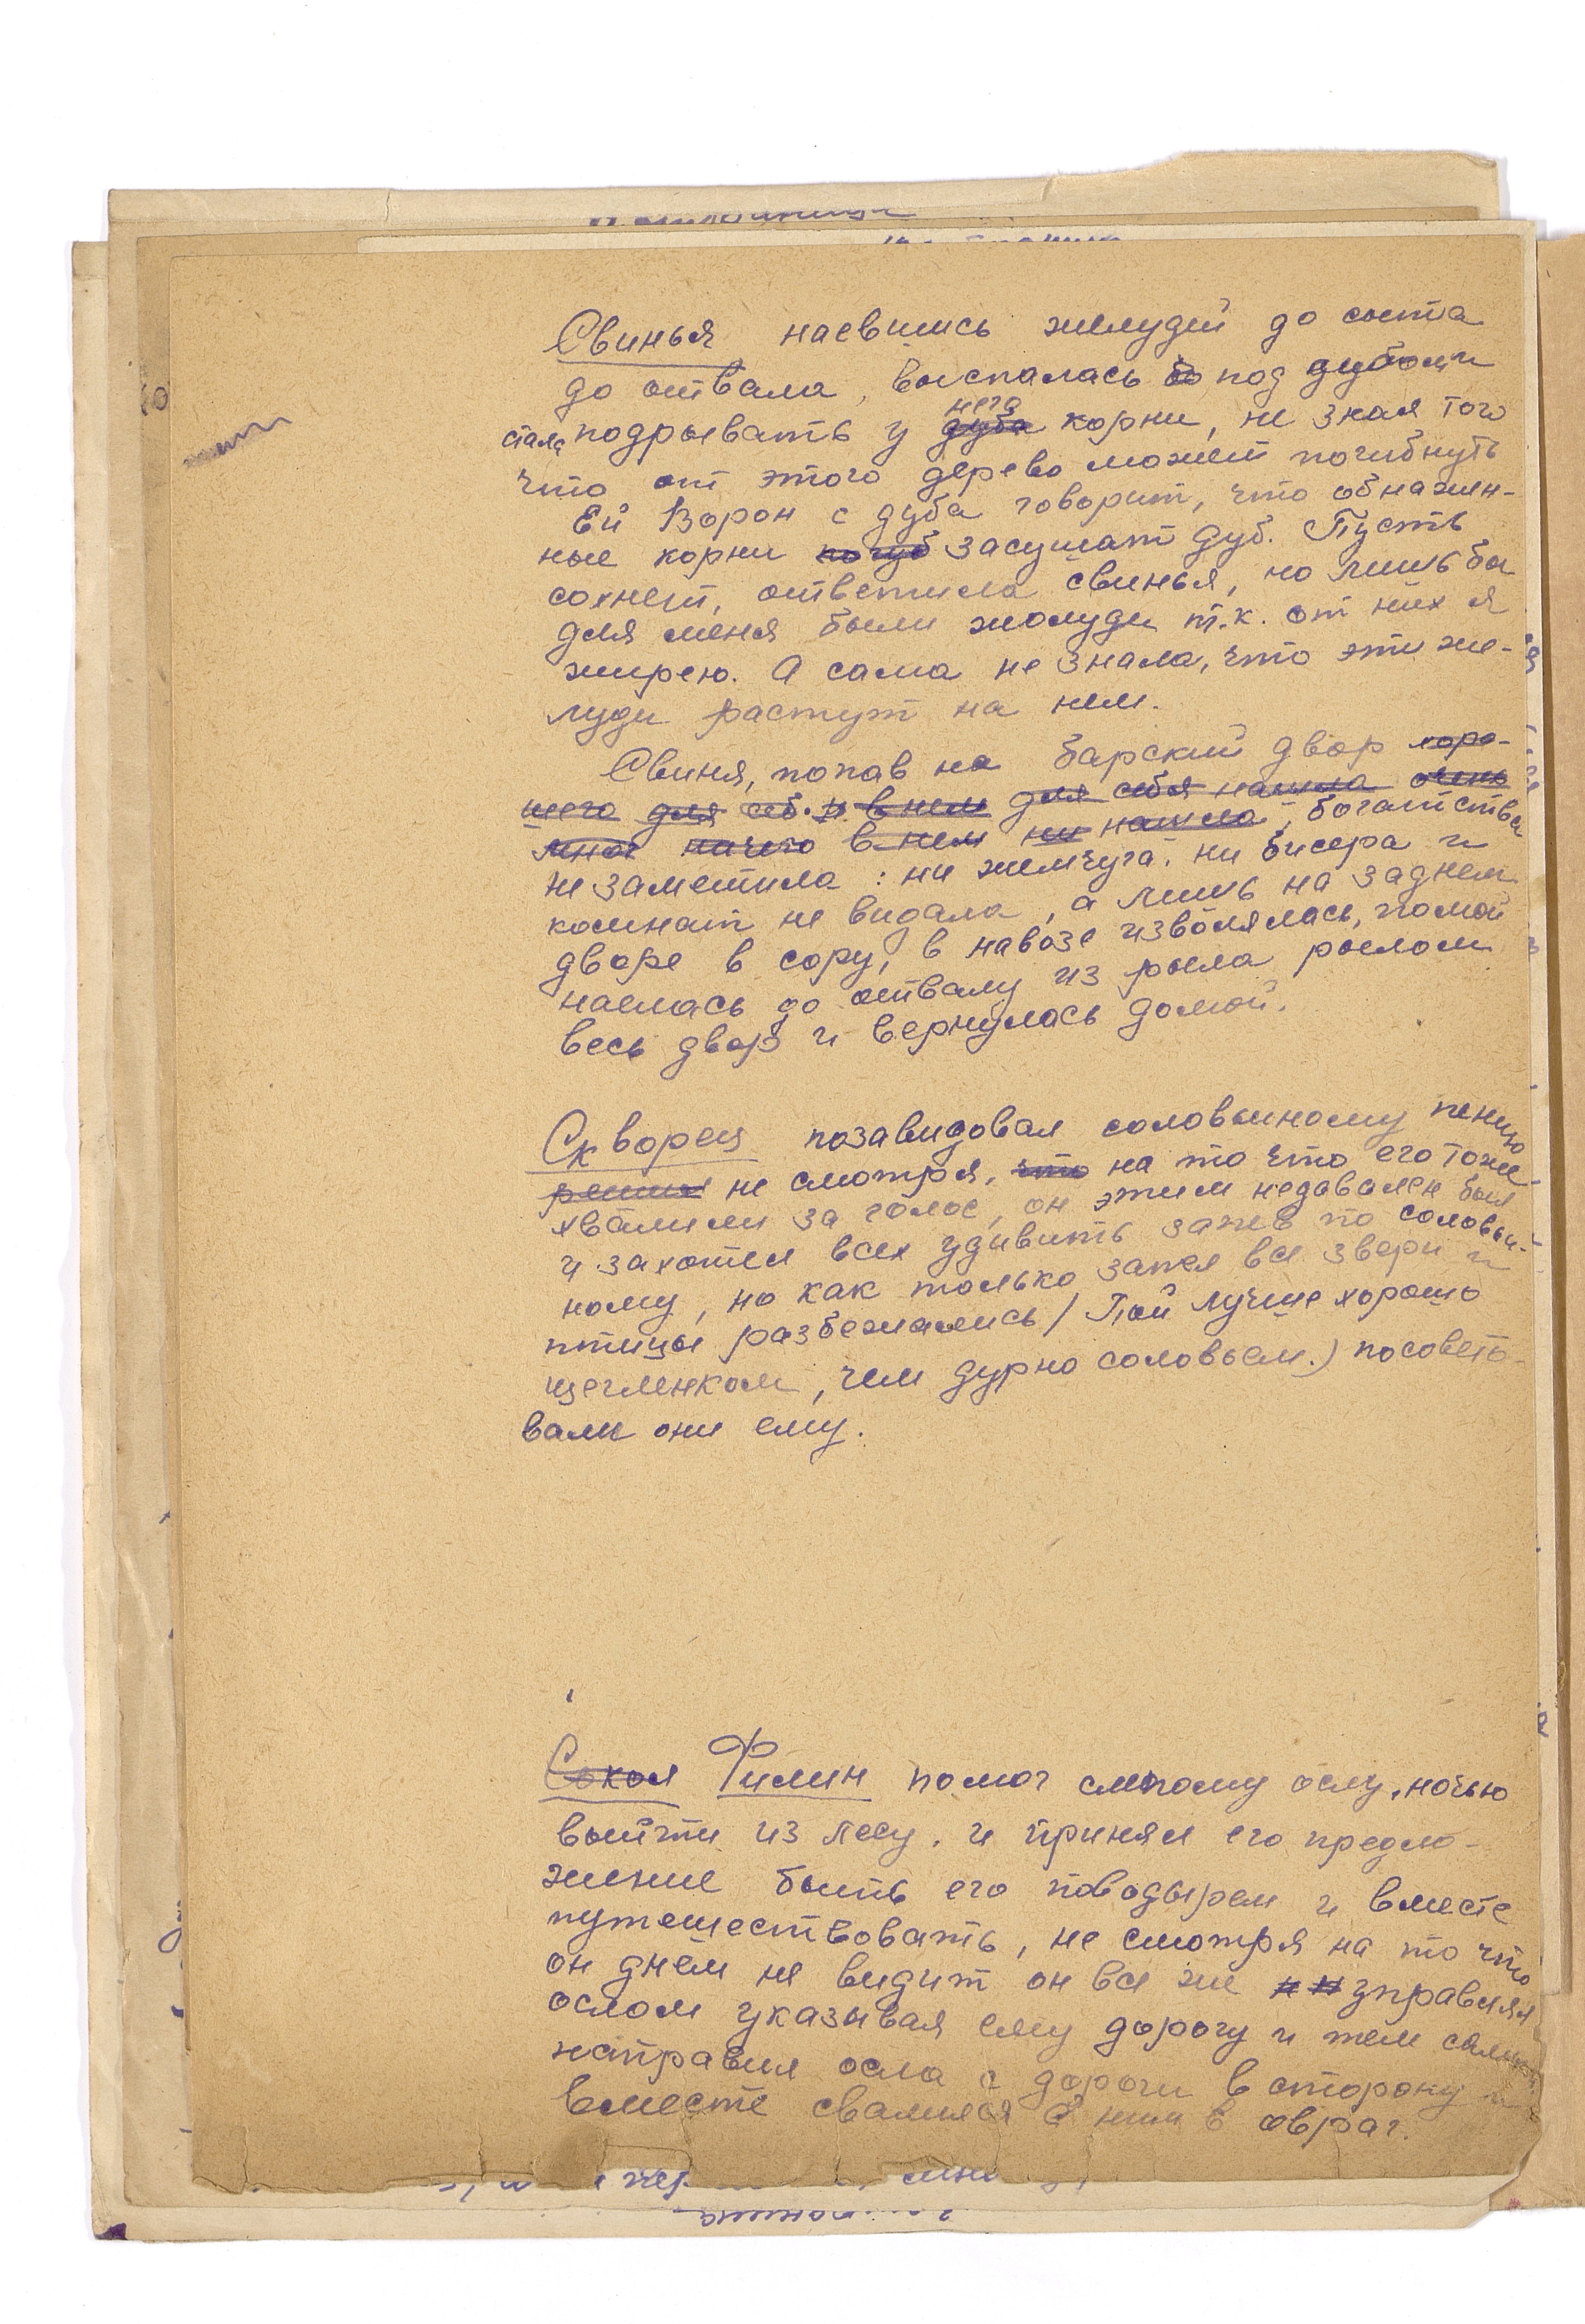 Свинья наевшись желудей до сыта
до отвала, выспалась под дубом и
него
стала подрывать у дуба корни, не зная того
что от этого дерево может погибнуть
Ей Ворон с дуба говорит, что обнажен-
ные корни погуб засушат дуб. Пусть
сохнет, ответила свинья, но лишь бы
для меня были жолуди т.к. от них я
жирею. А сама не знала, что эти же-
луди растут на нем.
Свиня, попав на барский двор хоро-
шего для себ. и в нем для себя нашла очень
мног ничего в нем ни нашла, богатства
не заметила: ни жемчуга, ни бисера и
комнат не видала, а лишь на заднем
дворе в сору, в навозе изволялась, помой
наелась до отвалу из рыла рылом
весь двор и вернулась домой.
Скворец позавидовал соловьиному пению
не смотря, что на то что его тоже
хвалили за голос, он этим недавален был
и захотел всех удивить запев по соловьи-
ному, но как только запел все звери и
птицы разбежались / Пой лучше хорошо
щегленком, чем дурно соловьем.) посовето-
вали они ему.
Сокол Филин помог слепому ослу, ночью
выйти из лесу, и принял его предло-
жение быть его поводырем и вместе
путешествовать, не смотря на то что
он днем не видит он все же н н управлял
ослом указывая ему дорогу и тем самым
направил осла с дороги в сторону и
вместе свалился с ним в овраг.